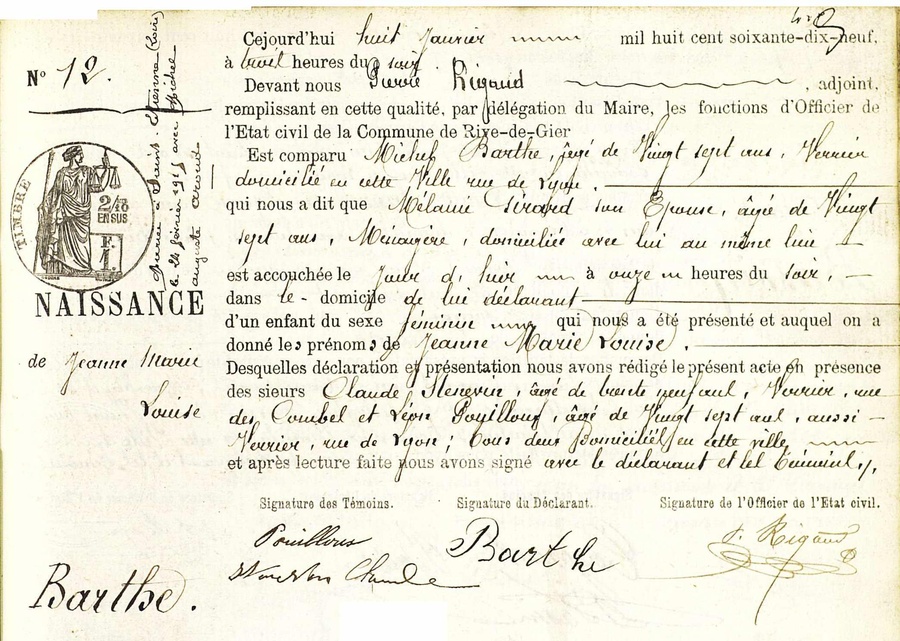 Nº 12.
mariée à Saint-Etienne (Loire)
le 24 février 1915 avec
auguste Michel
TIMBRE
2/10
EN SUS
F.
1.
NAISSANCE
de Jeanne Marie
Louise
Barthe.
Cejourd'hui huit Janvier mil huit cent soixante-dix-neuf,
à trois heures du soir
Devant nous Pierre Rigaud, adjoint,
remplissant en cette qualité, par délégation du Maire, les fonctions d'Officier de
l'Etat civil de la Commune de Rive-de-Gier
Est comparu Michel Barthe, âgé de Vingt sept ans, Verrier
domicilié en cette Ville rue de Lyon.
qui nous a dit que Mélanie Sérard son Epouse, âgée de Vingt
sept ans, Ménagère, domiciliée avec lui au même lieu
est accouchée le Jour d'hier à onze heures du soir,
dans le domicile de lui déclarant
d'un enfant du sexe féminin qui nous a été présenté et auquel on a
donné les prénoms de Jeanne Marie Louise.
Desquelles déclaration et présentation nous avons rédigé le présent acte en présence
des sieurs Claude âgé de trente neuf ans, Verrier, rue
des Combes et Léon Pouillous, âgé de Vingt sept ans, aussi
Verrier, rue de Lyon; Tous deux Domiciliés en cette ville
et après lecture faite nous avons signé avec le déclarant et les témoins,
Signature des Témoins. Signature du Déclarant. Signature de l'Officier de l'Etat civil.
Pouillous Barthe P. Rigaud
Claude